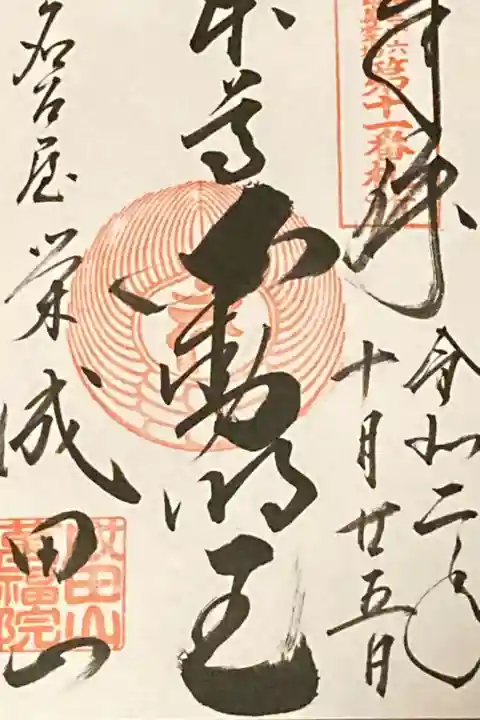 奉拝
令和二年
十月廿五日
第十一番
本尊
不動明王
名古屋栄成田山
成田山
萬福院